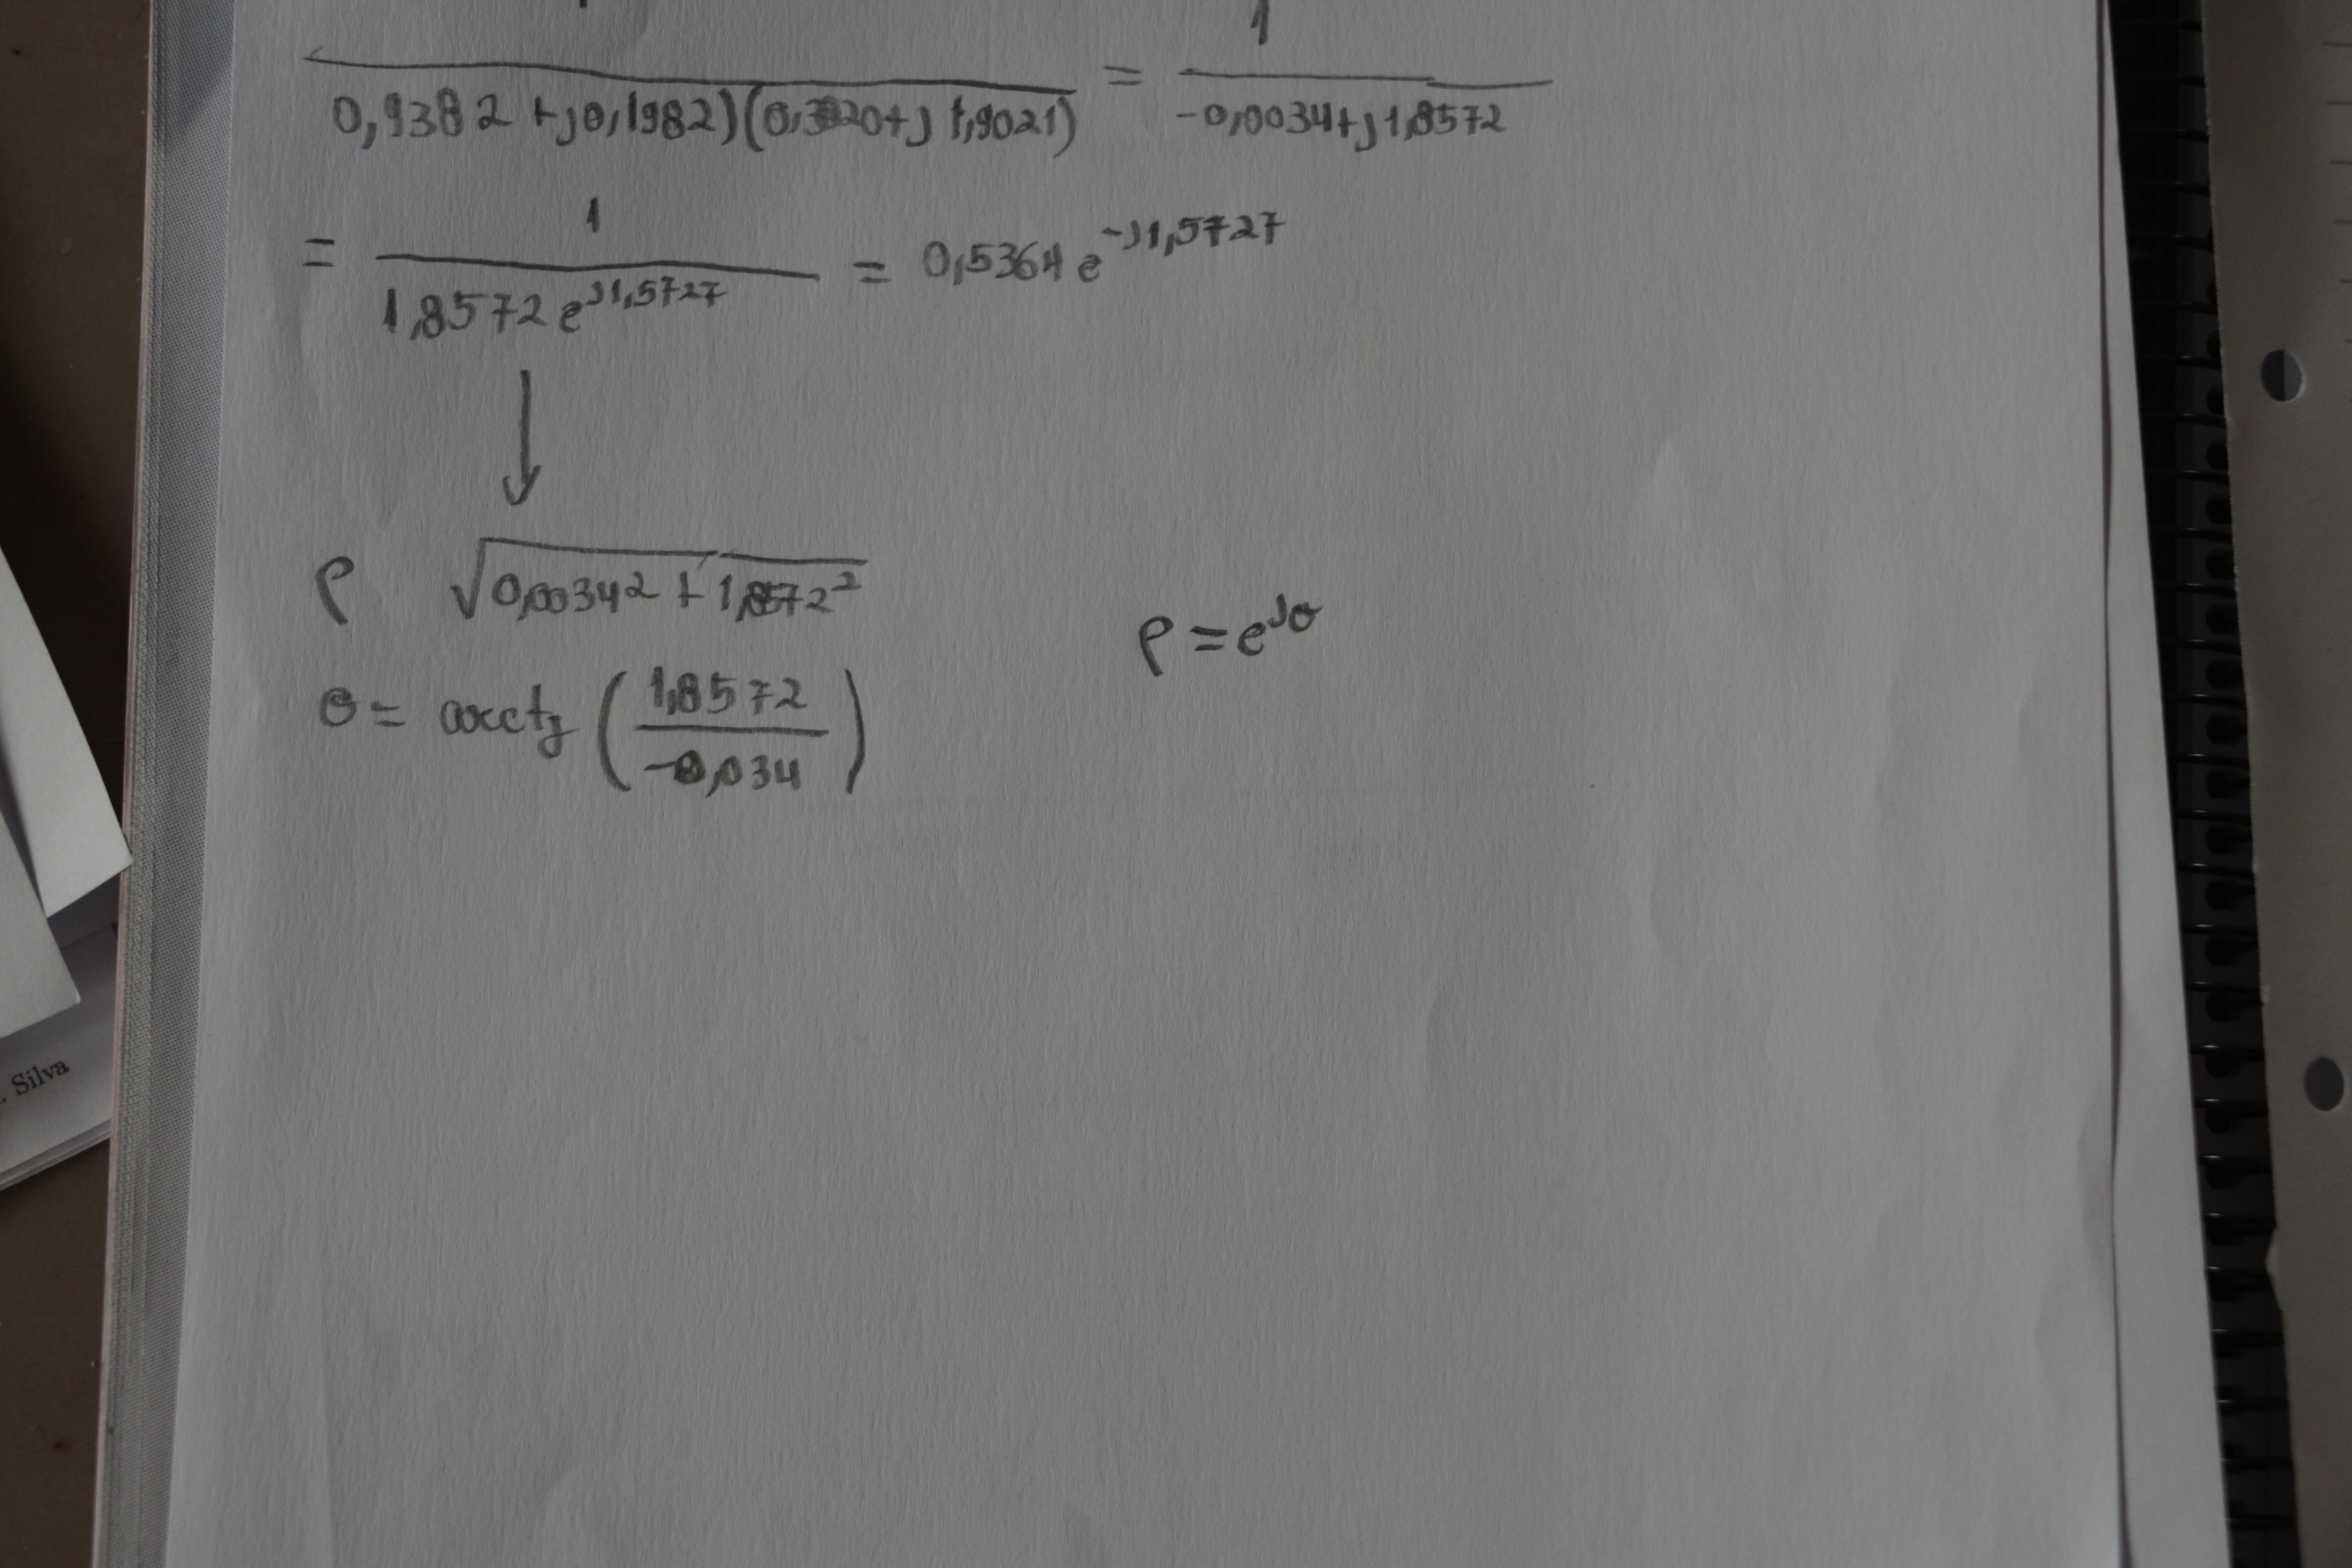 1
0,9382 + j0,1982)(0,3820+j 1,9021) = -0,0034+j1,8572
1
= 1,8572 e^j1,5727 = 0,5364 e^-j1,5727
ρ √0,0034² + 1,8572²
ρ = e^jθ
θ = arctg (1,8572 / -0,034)
. Silva